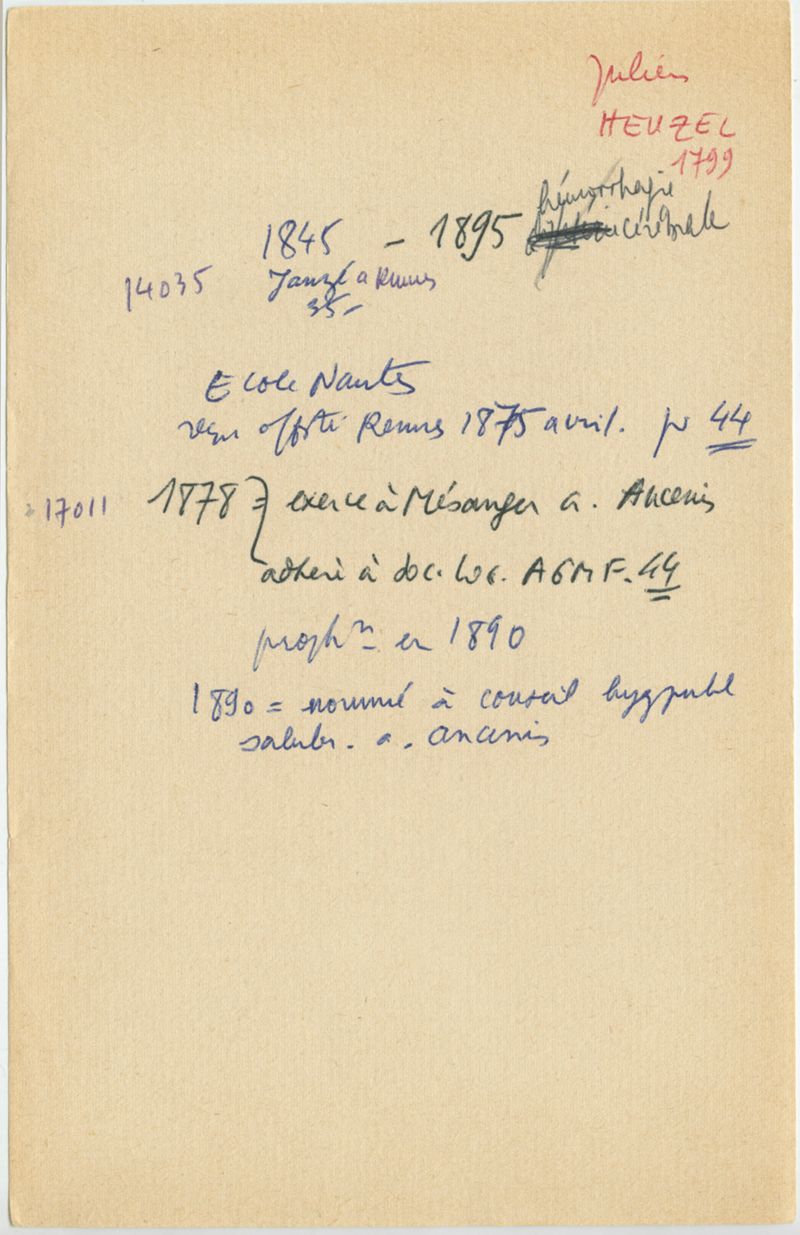 Julien
HEUZEL
1799
hémorrhagie
1845 - 1895 cérébrale
14035 Janzé a Rennes
35-
Ecole Nantes
reçu offté Rennes 1875 avril. pr 44
17011 1878 = exerce à Mésanger a. Ancenis
adhère à soc. loc. AGMF. 44
prophre en 1890
1890 = nommé à conseil hygpubl
salubr. a. ancenis